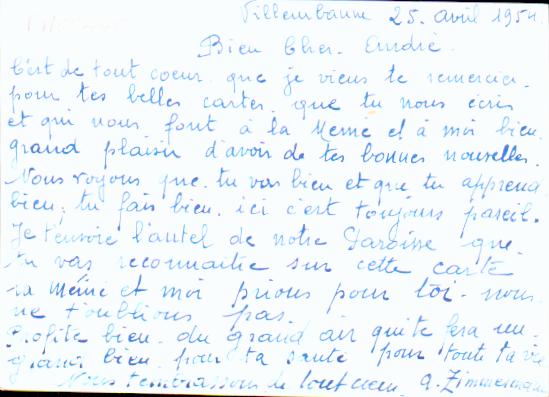 Villeurbanne 25. avril 1954.
Bien Cher. André.
C'est de tout coeur. que je viens te remercier.
pour tes belles cartes. que tu nous écris
et qui nous. font à la Mémé et à moi bien.
grand plaisir d'avoir de tes bonnes nouvelles.
Nous voyons que. tu vas bien et que tu apprend
bien, tu fais bien. ici c'est toujours pareil.
Je t'envoie l'autel de notre Paroisse que.
tu vas reconnaitre sur cette carte
la Mémé et moi prions pour toi. nous.
ne t'oublions pas.
Profite bien. du grand air qui te fera un.
grand bien. pour ta santé pour toute ta vie
Nous t'embrassons de tout coeur. a. Zimmermann